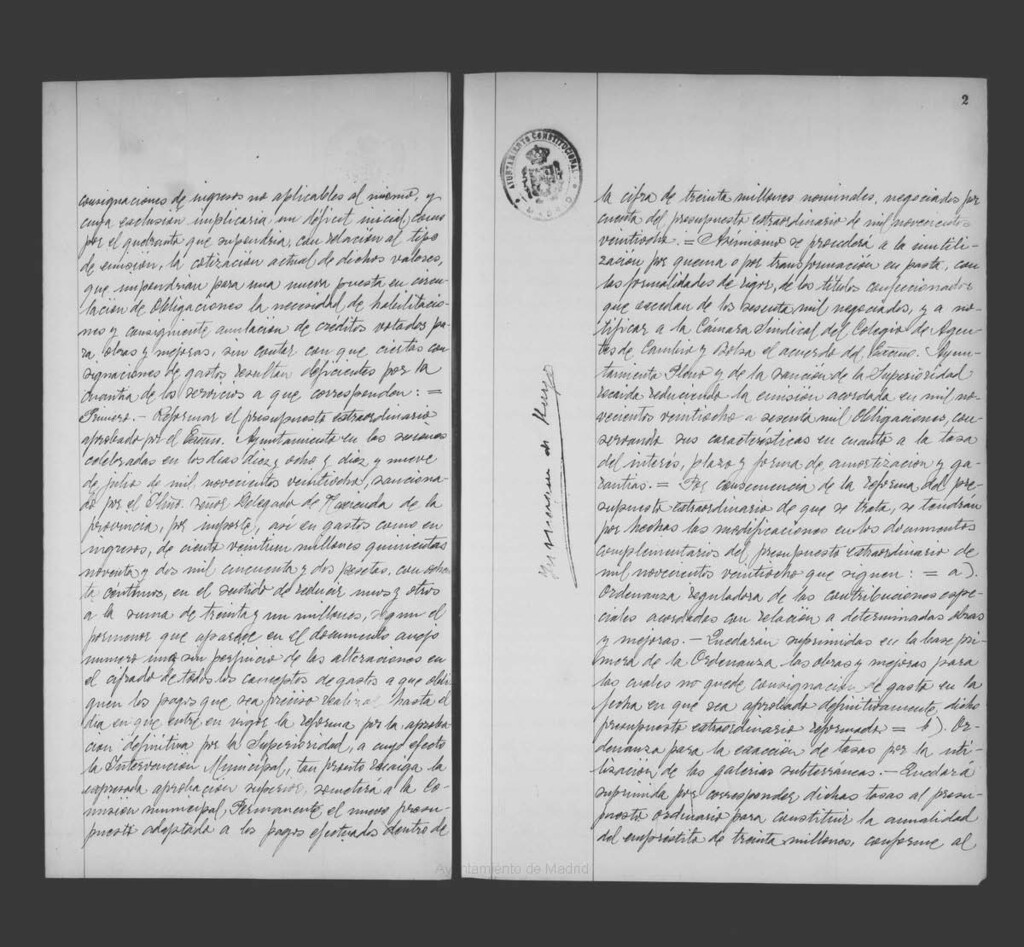 consignaciones de ingreso no aplicables al mismo, y
cuya exclusión implicaría un déficit inicial, como
por el quebranto que supondría, con relación al tipo
de emisión, la cotización actual de dichos valores,
que impondrían para una nueva puesta en circu-
lación de Obligaciones la necesidad de habilitacio-
nes y consiguiente anulación de créditos votados pa-
ra obras y mejoras, sin contar con que ciertas con
signaciones de gastos resultan deficientes por la
cuantía de los servicios a que corresponden: =
Primero.- Reformar el presupuesto extraordinario
aprobado por el Excmo. Ayuntamiento en las sesiones
celebradas en los días diez y ocho y diez y nueve
de julio de mil novecientos veintiocho, sanciona-
do por el Iltmo. señor Delegado de Hacienda de la
provincia, por importe, así en gastos como en
ingresos, de ciento veintiun millones quinientas
noventa y dos mil cincuenta y dos pesetas, con
céntimos, en el sentido de reducir unos y otros
a la suma de treinta y un millones, según el
pormenor que aparece en el documento anejo
número uno, sin perjuicio de las alteraciones en
el cifrado de todos los conceptos de gastos a que obli-
guen los pagos que sea preciso realizar hasta el
día en que entre en vigor la reforma por la aproba-
ción definitiva por la Superioridad, a cuyo efecto
la Intervención Municipal, tan pronto recaiga la
expresada aprobación superior, someterá a la Co-
misión municipal Permanente el nuevo presu-
puesto adaptado a los pagos efectuados dentro de
2
AYUNTAMIENTO CONSTITUCIONAL
MADRID
la cifra de treinta millones nominales, negociados por
cuenta del presupuesto extraordinario de mil novecientos
veintiocho. = Asimismo se procederá a la inutili-
zación por quema o por transformación en pasta, con
las formalidades de rigor, de los títulos confeccionados
que excedan de los sesenta mil negociados, y a no-
tificar a la Cámara Sindical del Colegio de Agen-
tes de Cambio y Bolsa el acuerdo del Excmo. Ayun-
tamiento Pleno y de la sanción de la Superioridad
recaída reduciendo la emisión acordada en mil no-
vecientos veintiocho a sesenta mil Obligaciones, con-
servando sus características en cuanto a la tasa
del interés, plazo y forma de amortización y ga-
rantías. = Por consecuencia de la reforma del pre-
supuesto extraordinario de que se trata, se tendrán
por hechas las modificaciones en los documentos
complementarios del presupuesto extraordinario de
mil novecientos veintiocho que siguen: = a).
Ordenanza reguladora de las contribuciones espe-
ciales acordadas con relación a determinadas obras
y mejoras.- Quedarán suprimidas en la base pri-
mera de la Ordenanza, las obras y mejoras para
las cuales no quede consignación de gasto en la
fecha en que sea aprobado definitivamente, dicho
presupuesto extraordinario reformado = b). Or-
denanza para la exacción de tasas por la uti-
lización de las galerías subterráneas. - Quedará
suprimida por corresponder dichas tasas al presu-
puesto Ordinario para constituir la anualidad
del empréstito de treinta millones, conforme al
Ayuntamiento de Madrid